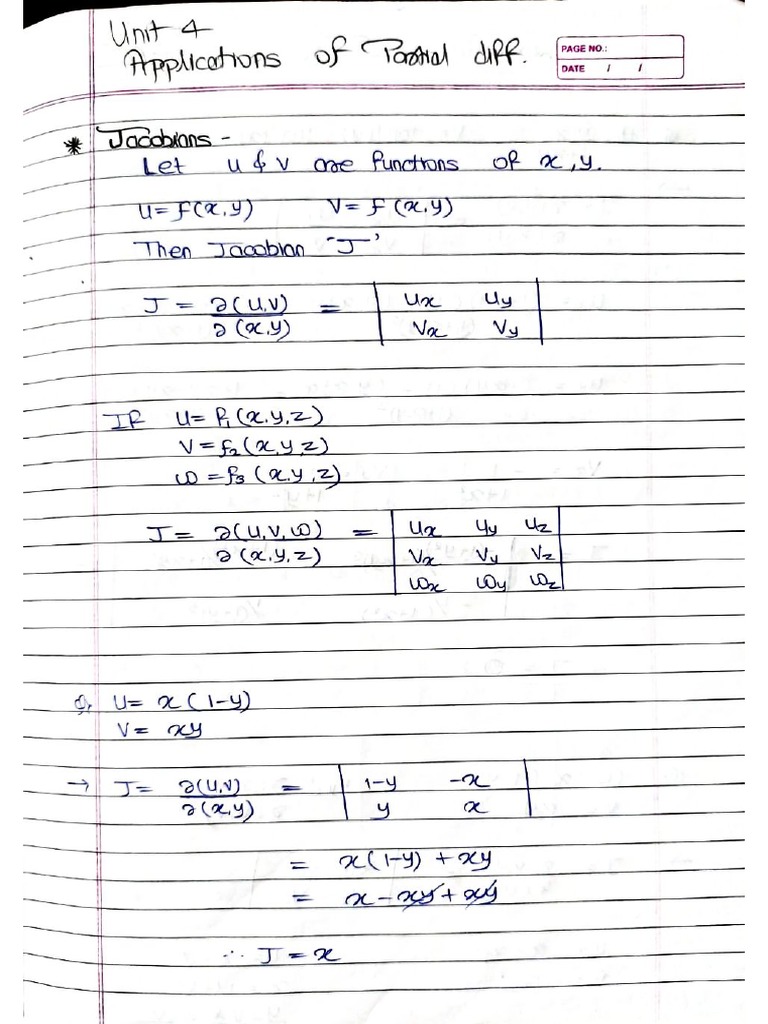 Unit 4
Applications of Partial diff.
PAGE NO.:
DATE / /
* Jacobians -
Let u & v are functions of x, y.
u = f(x,y) v = f(x,y)
Then Jacobian "J"
J = ∂(u,v) = | ux uy |
∂(x,y) | vx vy |
If u = f₁(x,y,z)
v = f₂(x,y,z)
ω = f₃(x,y,z)
J = ∂(u,v,ω) = | ux uy uz |
∂(x,y,z) | vx vy vz |
| ωx ωy ωz |
Q. u = x(1-y)
v = xy
→ J = ∂(u,v) = | 1-y -x |
∂(x,y) | y x |
= x(1-y) + xy
= x - xy + xy
∴ J = x